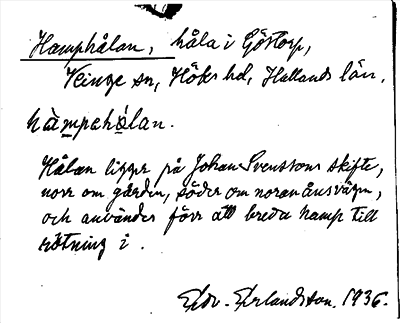 Hamphålan, håla i Göstorp,
Veinge sn, Höks hd, Hallands län.
hàmpehɷ́lan.
Hålan ligger på Johan Svenssons skifte,
norr om gården, söder om noranåvägen,
och användes förr att breda hamp till
rötning i.
Edv. Erlandsson. 1936.